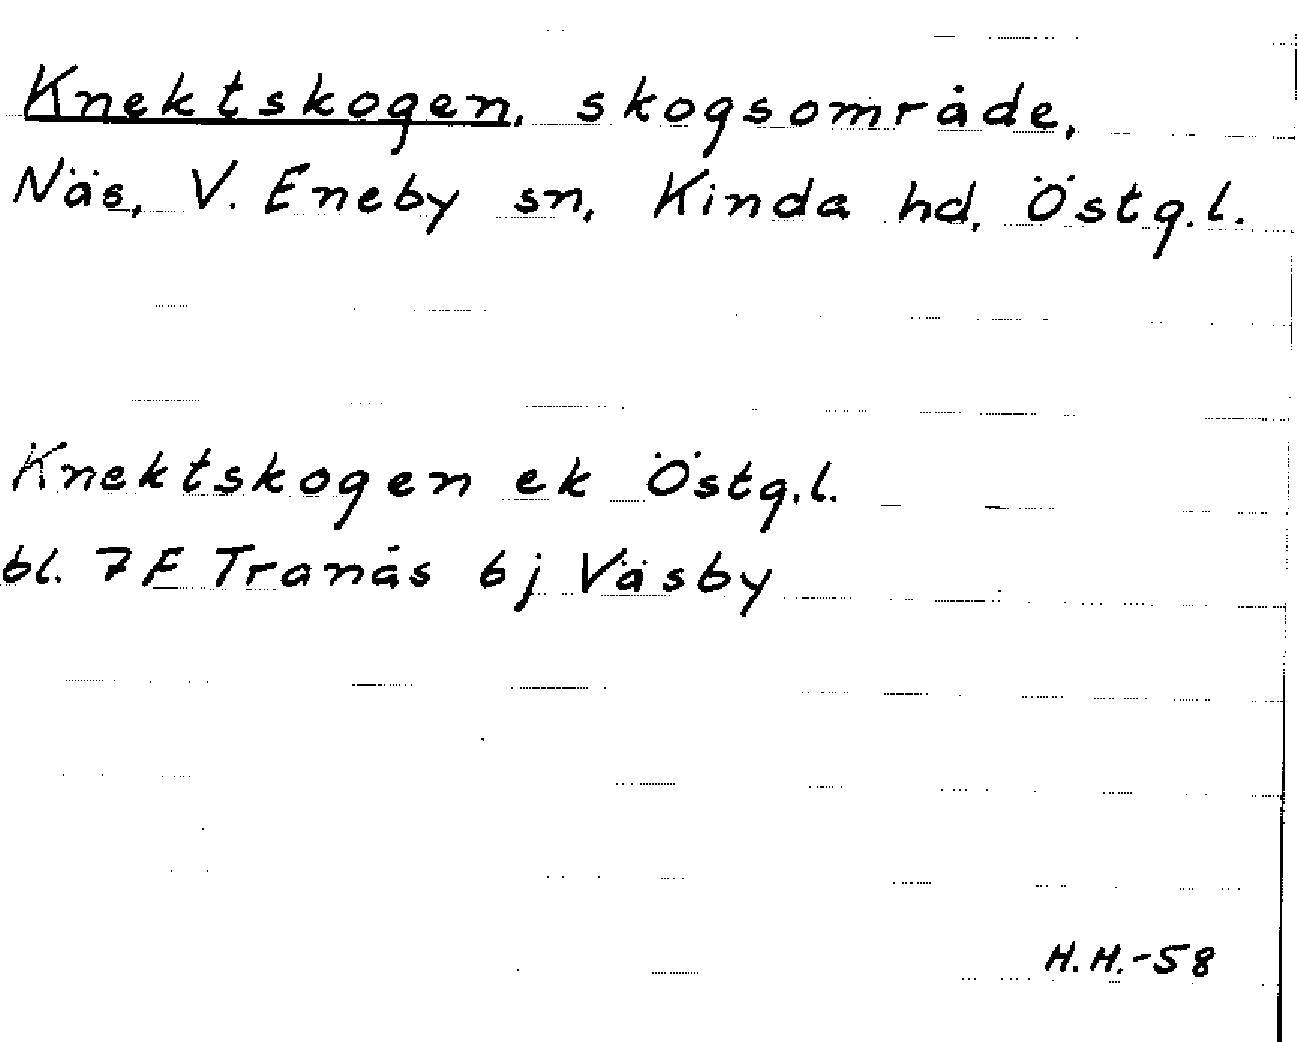 Knektskogen, skogsområde,
Näs, V. Eneby sn, Kinda hd, Östg.l.
Knektskogen ek Östg.l.
bl. 7F Tranås 6j Väsby
H.H.-58